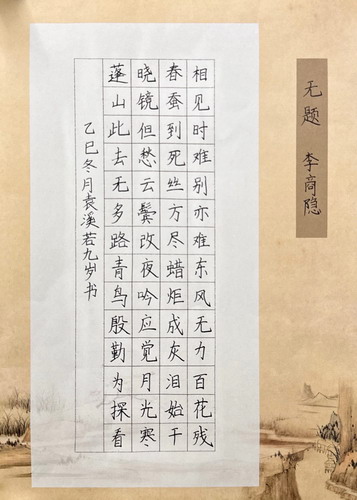 无题 李商隐
相见时难别亦难东风无力百花残
春蚕到死丝方尽蜡炬成灰泪始干
晓镜但愁云鬓改夜吟应觉月光寒
蓬山此去无多路青鸟殷勤为探看
乙巳冬月袁溪若九岁书